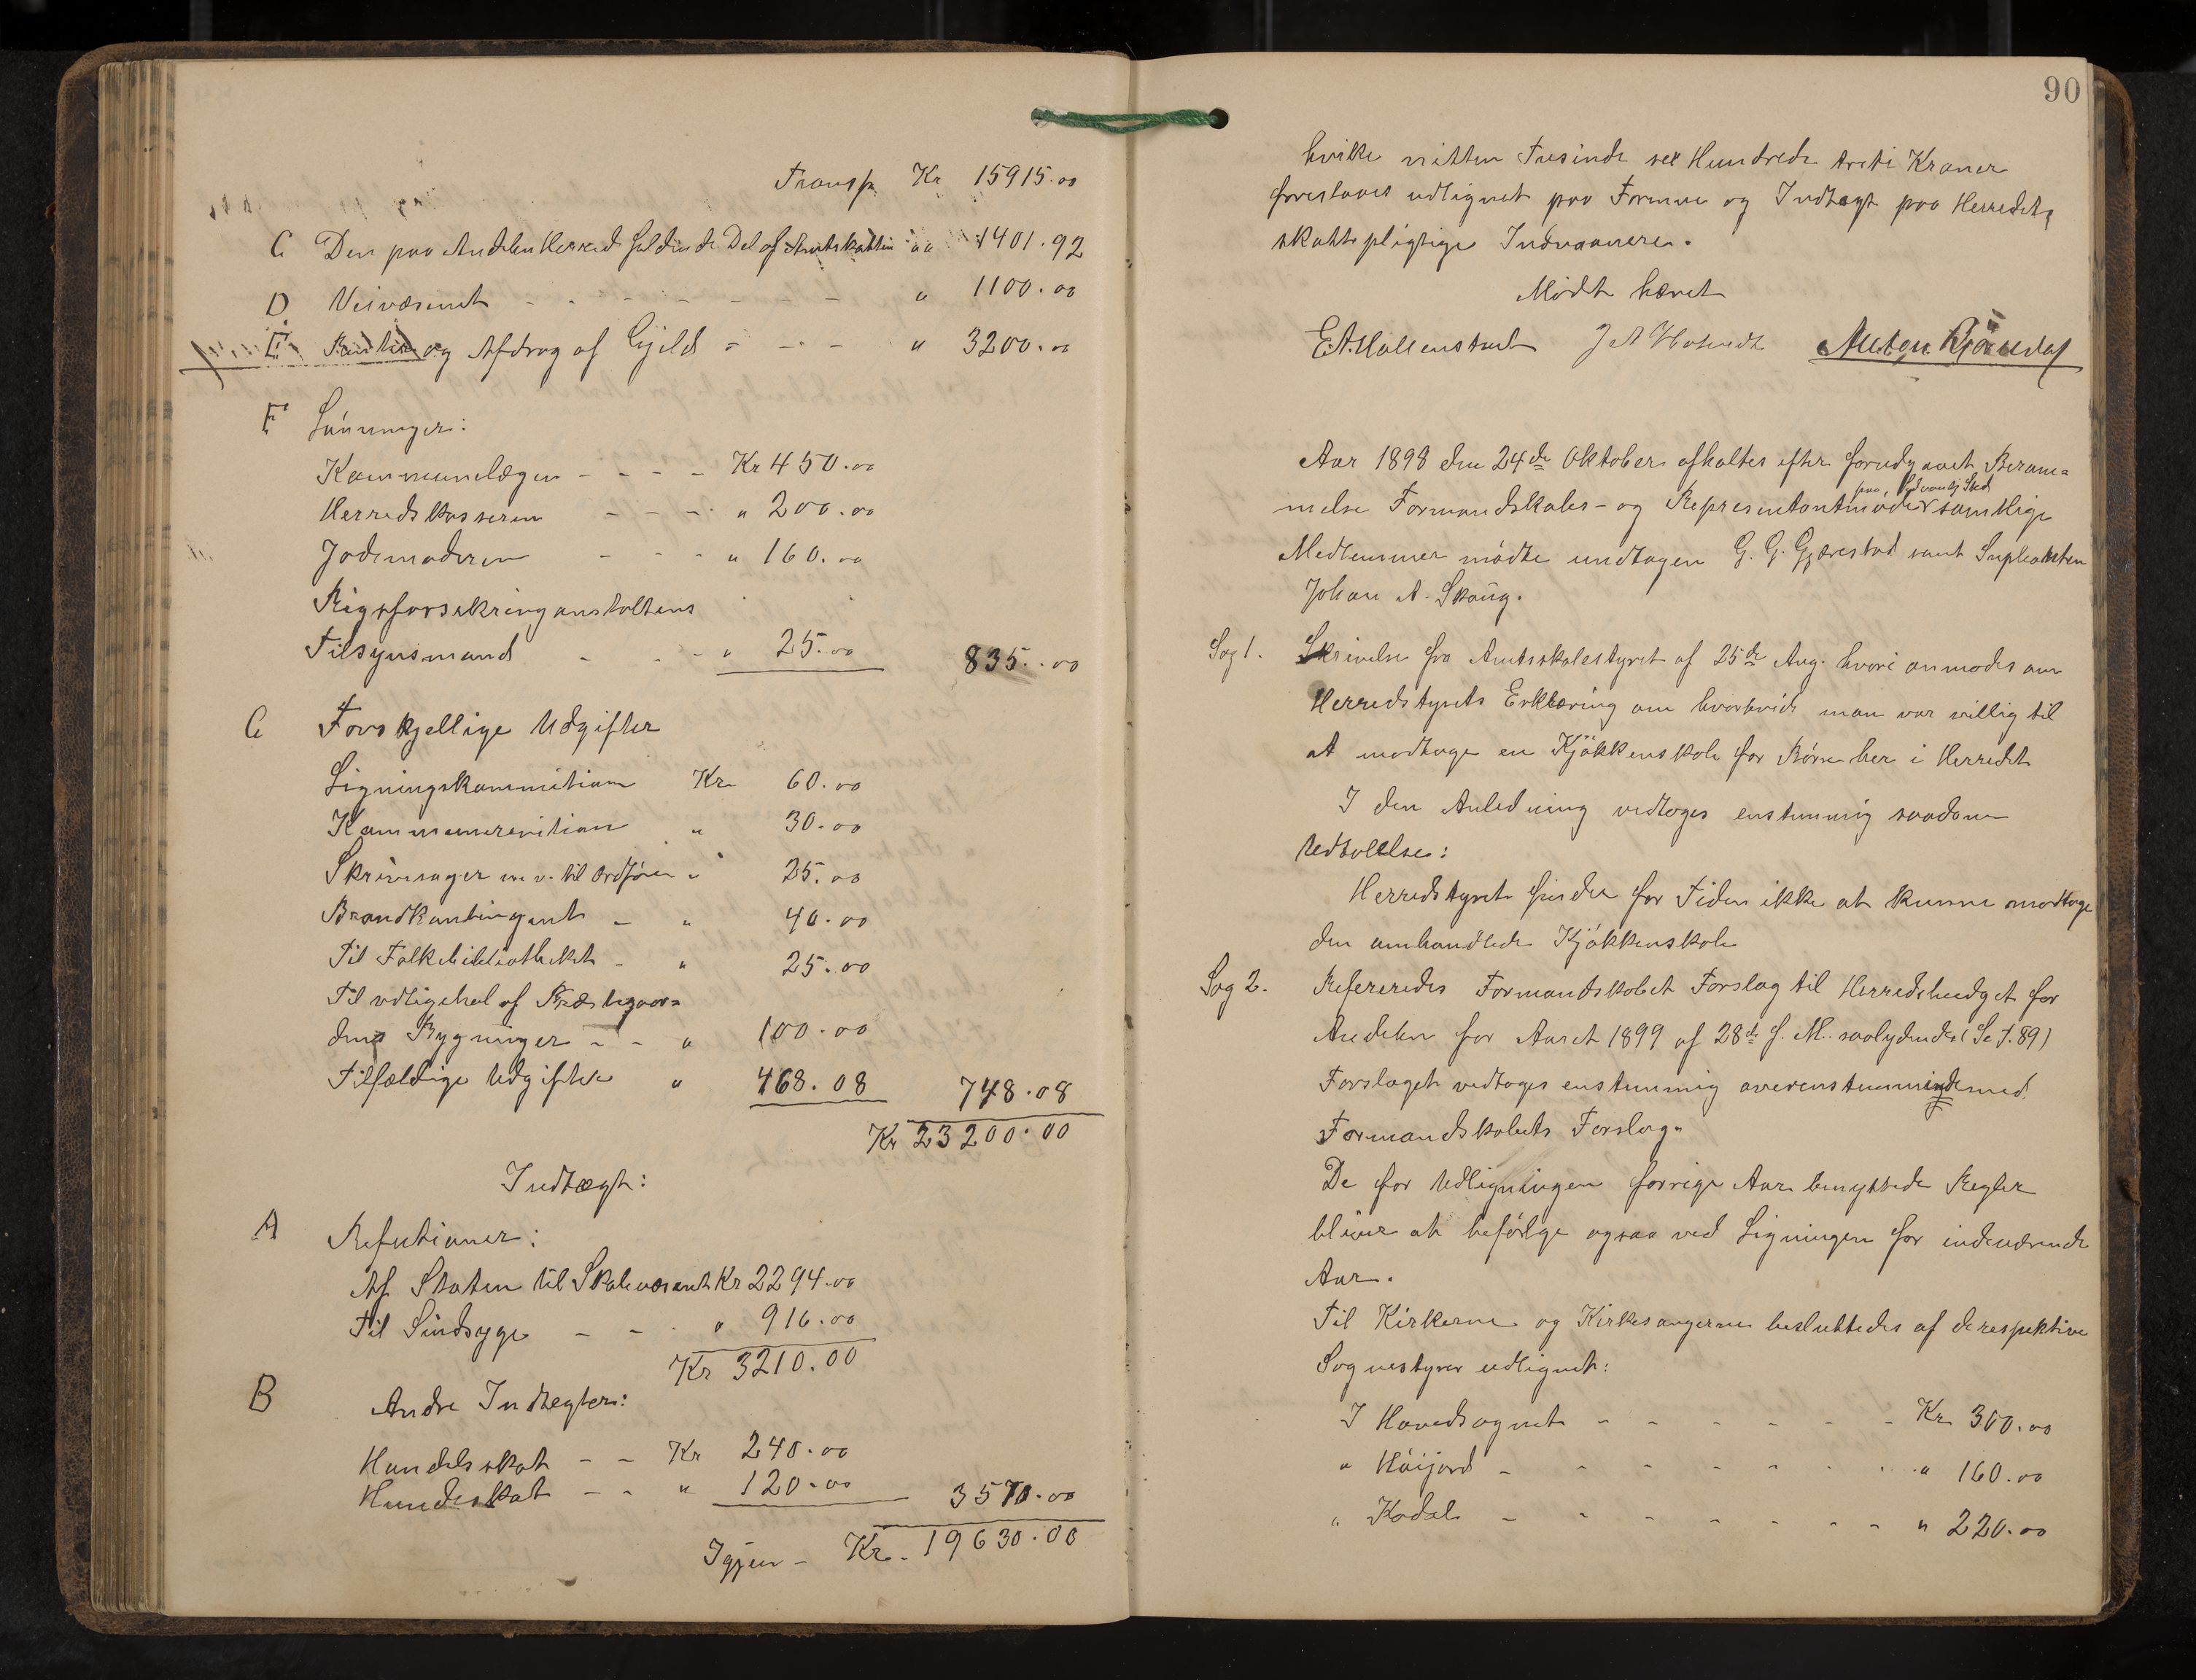 Transp. Kr 15915.00
C Den paa Andebu Herred faldende Del af Amtsskatten " 1401.92
D Veivæsenet - - - - - - - " 1100.00
E Renter og Afdrag af Gjeld - - - " 3200.00
F Lønninger:
Kommunelægen - - - - Kr 450.00
Herredskasseren - - - - " 200.00
Jodemoderen - - - " 160.00
Rigsforsikringanstaltens
Tilsynsmand - - - " 25.00 835.00
G Forskjellige Udgifter
Ligningskommition Kr 60.00
Kommunerevition " 30.00
Skrivesager m v. til Ordfører " 25.00
Brandkontingent - " 40.00
Til Folkebibliotheket - " 25.00
Til vdligehol af Præstegaar=
dens Bygninger - - " 100.00
Tilfældige Udgifter " 468.08 748.08
Kr 23200.00
Indtægt:
A Refutioner:
Af Staten til Skolevæsenet Kr 2294.00
Til Sindsyge - - - " 916.00
Kr 3210.00
B Andre Indtegter:
Handelsskat - - Kr 240.00
Hundeskat - - " 120.00 3570.00
Igjen - Kr. 19630.00
90
hvilke nitten Tusinde sex Hundrede treti Kroner
foreslaaes udlignet paa Formue og Indtægt paa Herredets
skattepligtige Indvaanere.
Mødet hævet
E.A. Møllenstad J A Anton
Aar 1898 den 24de Oktober afholtes efter forudgaaet Beram=
paa sedvanlig Sted
melse Formandskabs- og Representantmøde samtlige
Medlemmer mødte undtagen G. G. Gjærestad samt Supleanten
Johan A. Skaug.
Sag 1. Skrivelse fra Amtsskolestyret af 25de Aug. hvori anmodes om
Herredstyrets Erklæring om hvorhvidt man var villig til
at modtage en Kjøkkenskole for Børn her i Herredet
I den Anledning vedtoges enstemmig saadan
Udtalelse:
Herredstyret finder for Tiden ikke at kunne modtage
den omhandlede Kjøkkenskole
Sag 2. Refereredes Formandskabet Forslag til Herredsbudget for
Andebu for Aaret 1899 af 28de f. M. saalydende (Se S. 89)
Forslaget vedtoges enstemmig overenstemmende med
Formandskabets Forslag.
De for Udligningen forrige Aar benyttede Regler
bliver at beførlge ogsaa ved Ligningen for indeværende
Aar.
Til Kirkerne og Kirkesangerne besluttedes af de respektive
Sognestyrer udlignet:
I Hovedsognet - - - - - - Kr 300.00
" Høijord - - - - - - - " 160.00
" Kodal - - - - - - - " 220.00